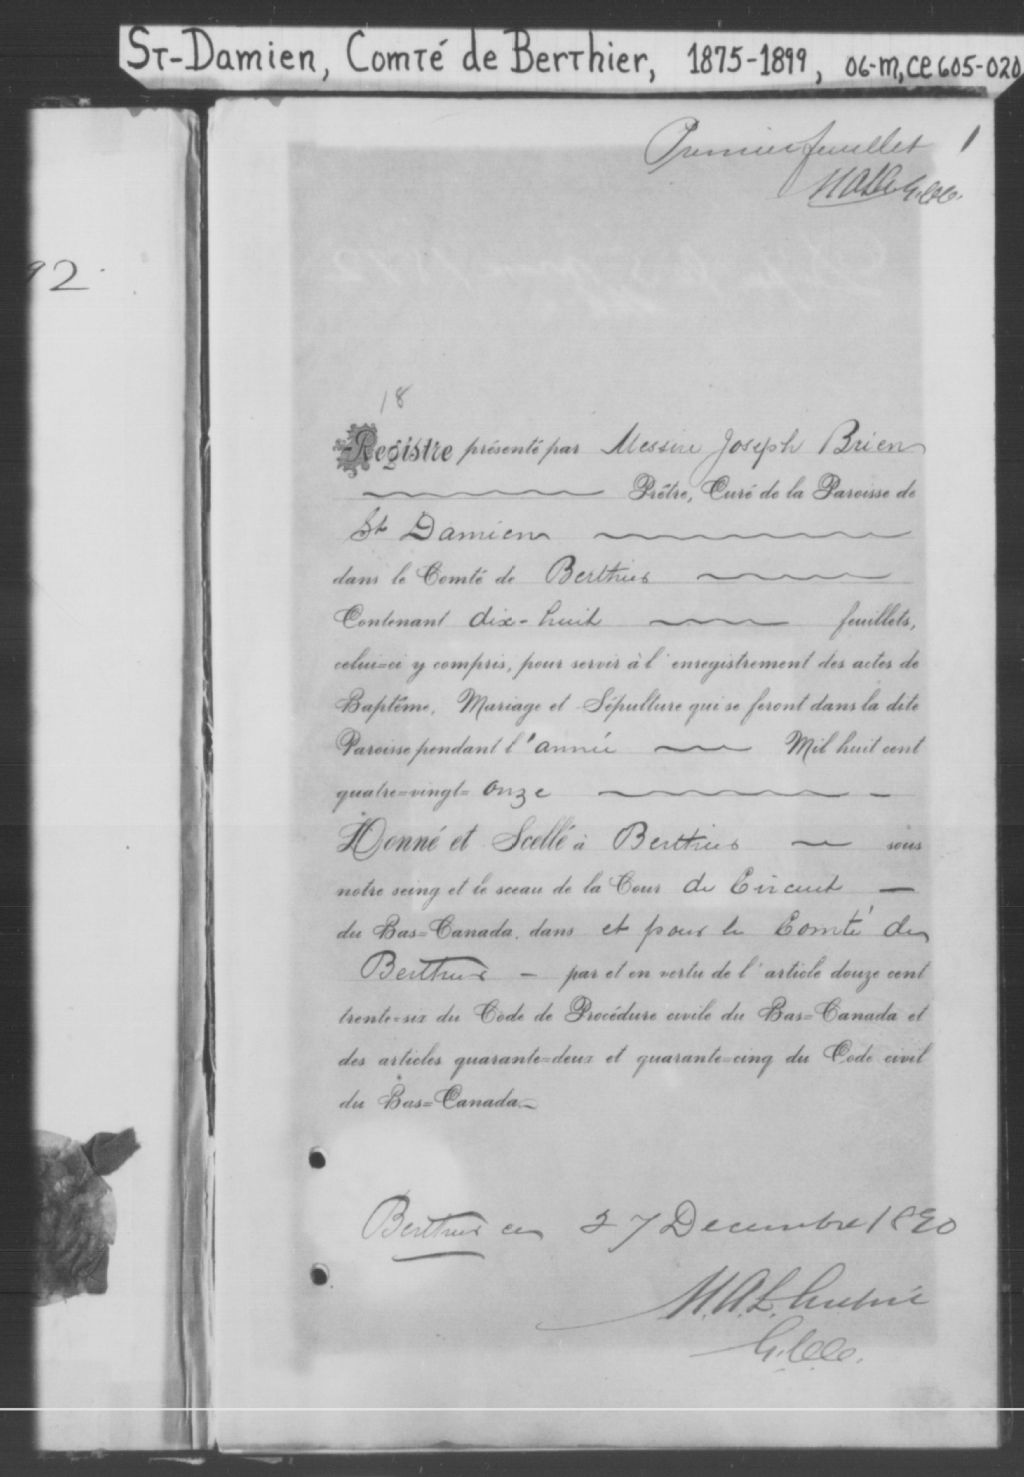 St-Damien, Comté de Berthier, 1875-1899, 06-M,CE605-020
Premier feuillet 1
92.
18
Registre présenté par Messire Joseph Brien
Prêtre, Curé de la Paroisse de
St Damien
dans le Comté de Berthier
Contenant dix-huit feuillets,
celui=ci y compris, pour servir à l'enregistrement des actes de
Baptême, Mariage et Sépulture qui se feront dans la dite
Paroisse pendant l'année Mil huit cent
quatre=vingt= onze
Donné et Scellé à Berthier sous
notre seing et le sceau de la Cour de Circuit
du Bas=Canada, dans et pour le Comté de
Berthier - par et en vertu de l'article douze cent
trente=six du Code de Procédure civile du Bas=Canada et
des articles quarante=deux et quarante=cinq du Code civil
du Bas=Canada.
Berthier ce 27 Decembre 1890
M.A.L.